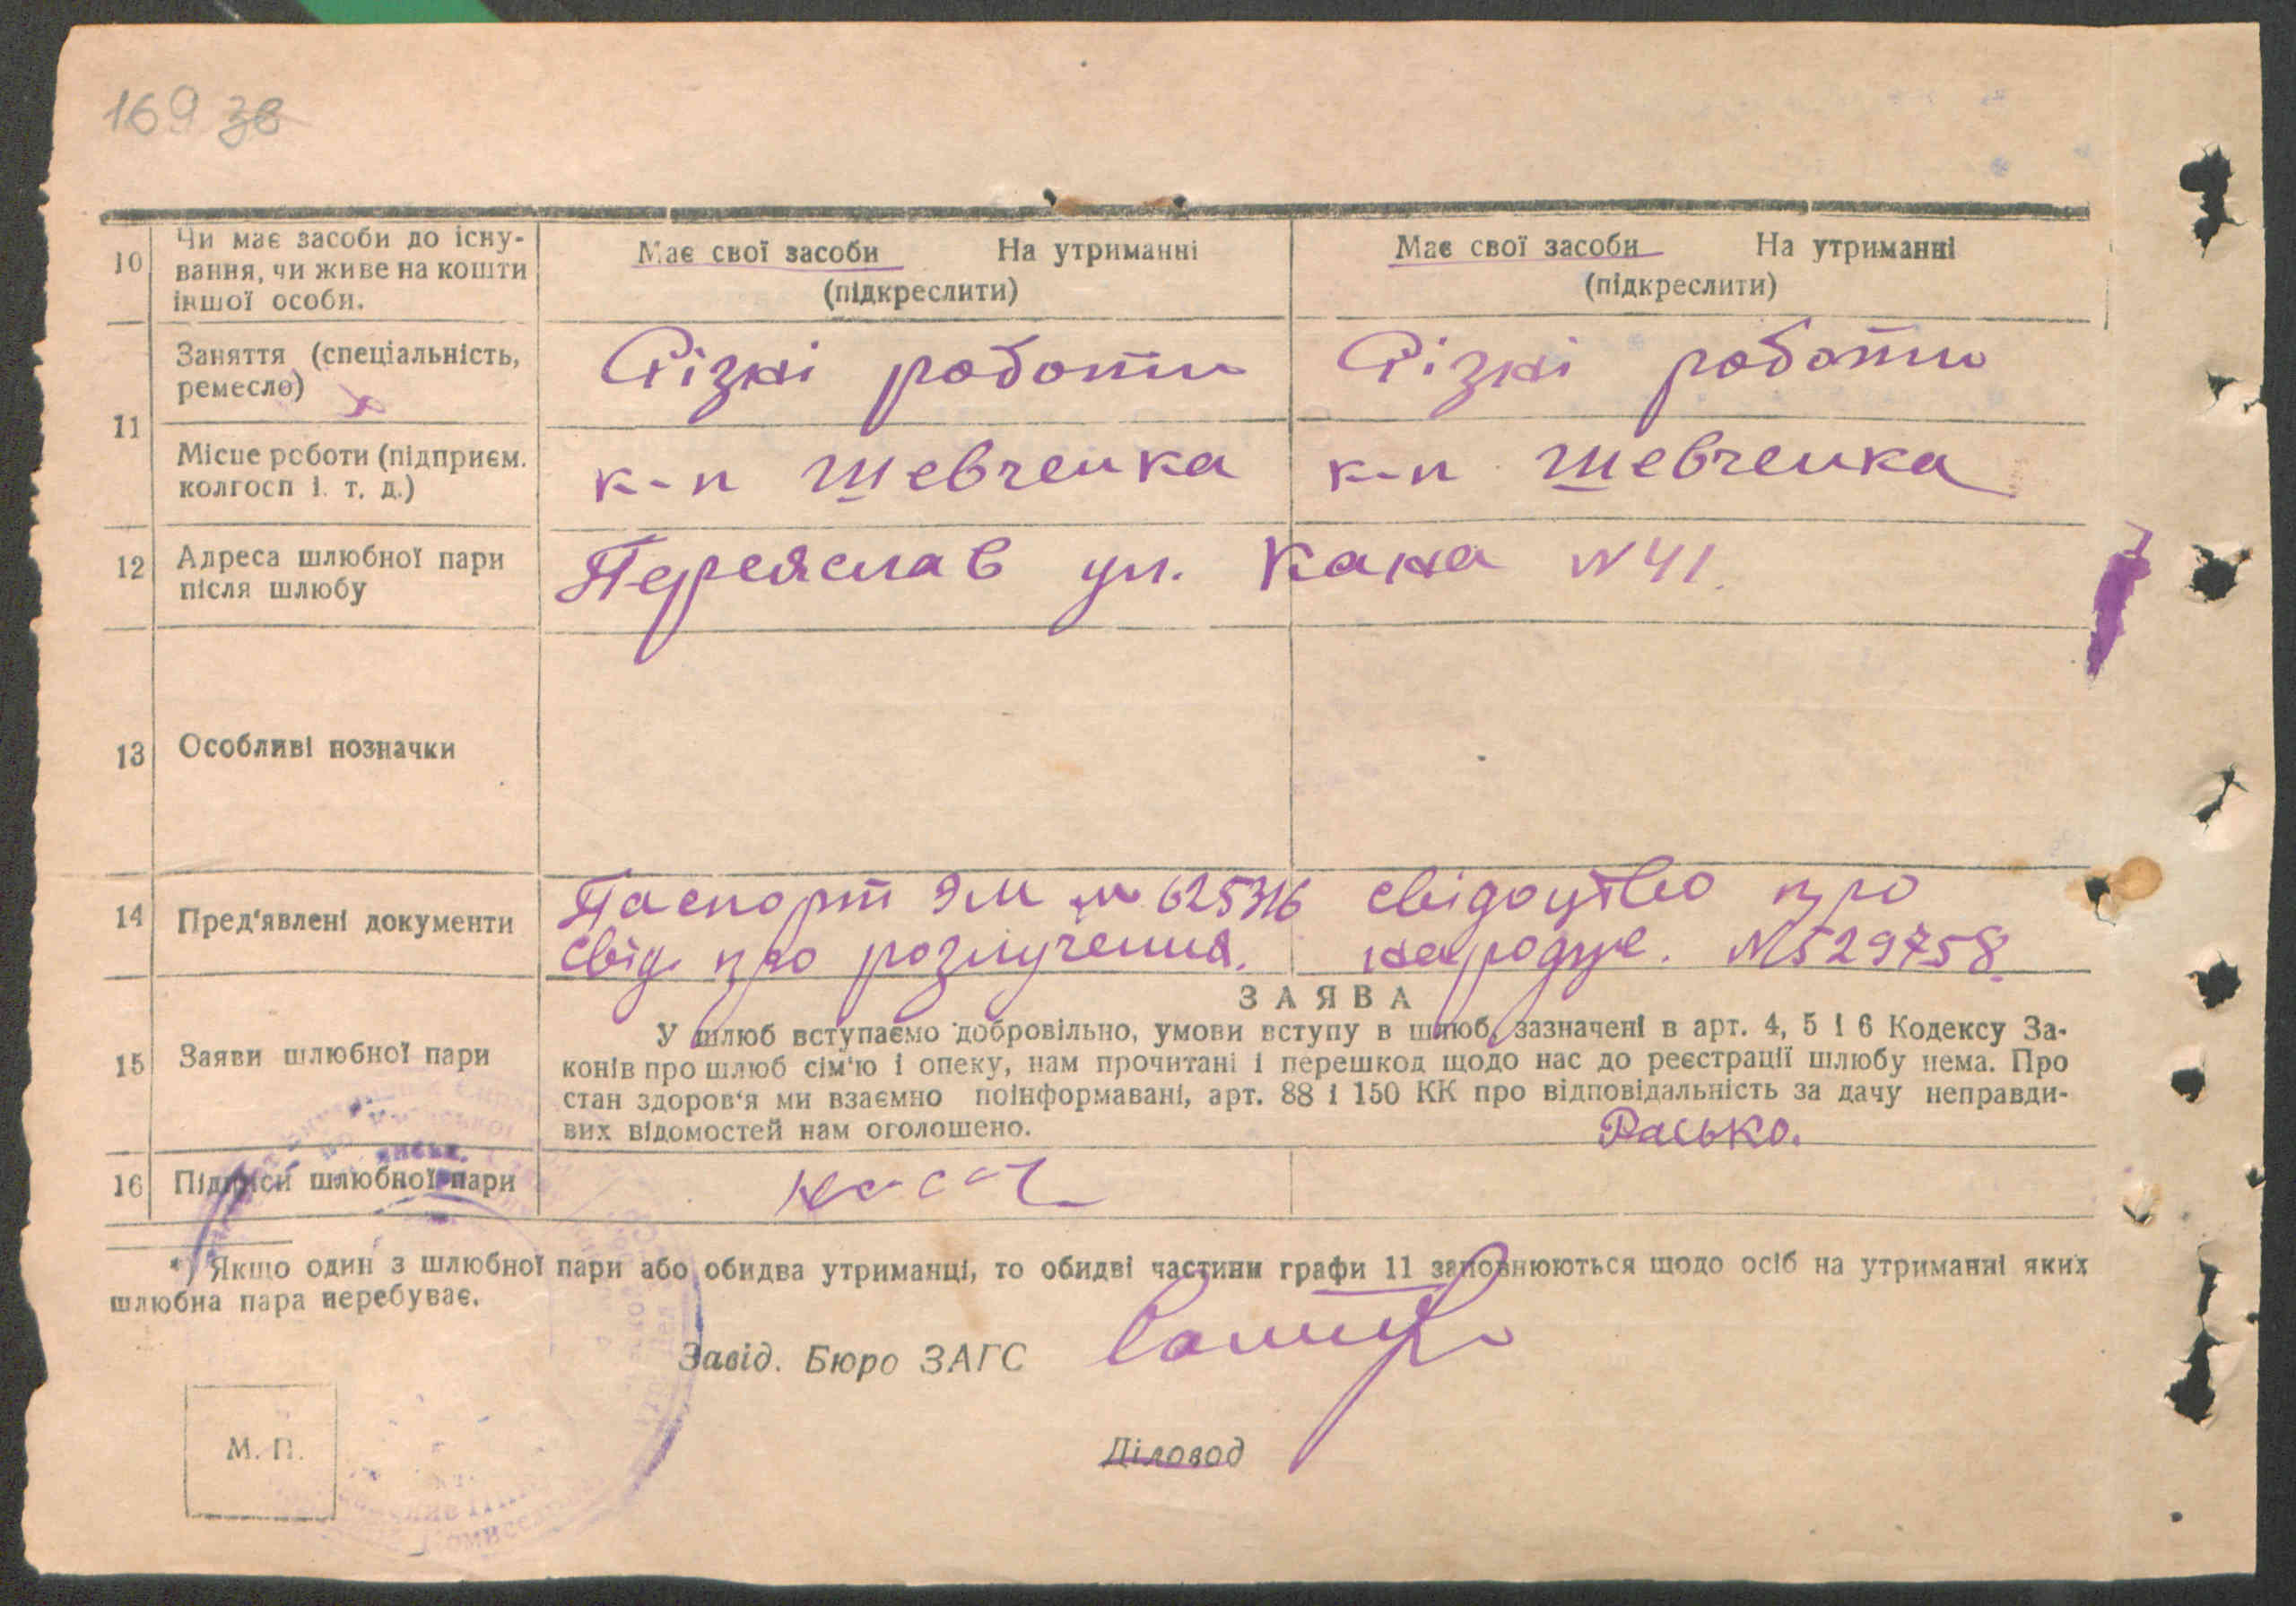 169 зв
10 Чи має засоби до існу-
вання, чи живе на кошти
іншої особи.
Має свої засоби На утриманні
(підкреслити)
Має свої засоби На утриманні
(підкреслити)
11 Заняття (спеціальність,
ремесло)
Різні роботи
Різні роботи
Місце роботи (підприєм.
колгосп і. т. д.)
к-п Шевченка
к-п Шевченка
12 Адреса шлюбної пари
після шлюбу
Переяслав ул. Кана №41
13 Особливі позначки
14 Пред'явлені документи
Паспорт ЭМ № 625316
свід. про розлучення.
свідоцтво про
народж. №529758.
15 Заяви шлюбної пари
ЗАЯВА
У шлюб вступаємо добровільно, умови вступу в шлюб, зазначені в арт. 4, 5 і 6 Кодексу За-
конів про шлюб сім'ю і опеку, нам прочитані і перешкод щодо нас до реєстрації шлюбу нема. Про
стан здоров'я ми взаємно поінформавані, арт. 88 і 150 КК про відповідальність за дачу неправди-
вих відомостей нам оголошено.
Расько.
16 Підписи шлюбної пари
*) Якщо один з шлюбної пари або обидва утриманці, то обидві частини графи 11 заповнюються щодо осіб на утриманні яких
шлюбна пара перебуває.
Завід. Бюро ЗАГС
М. П.
Діловод